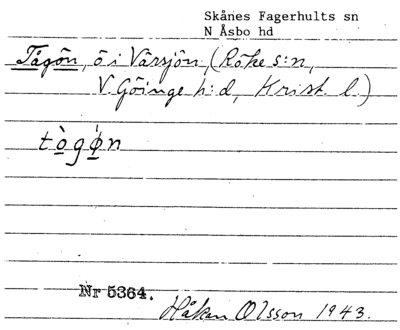 Skånes Fagerhults sn
N Åsbo hd
Tågön, ö i Vårsjön, (Röke s:n,
V. Göinge h:d, Krist. l.)
tògǿn
Nr 5364.
Håkan Olsson 1943.